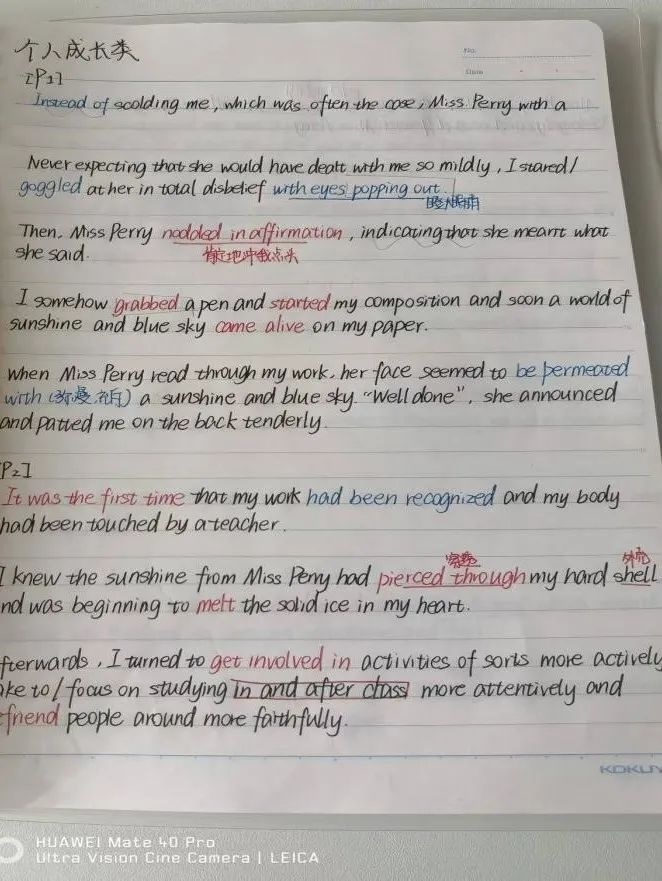 个人成长类
No.
Date
[P1]
Instead of scolding me, which was often the case, Miss Perry with a
Never expecting that she would have dealt with me so mildly, I stared/
goggled at her in total disbelief with eyes popping out.
Then, Miss Perry nodded in affirmation, indicating that she meant what
she said.
肯定地冲我点头
I somehow grabbed a pen and started my composition and soon a world of
sunshine and blue sky came alive on my paper.
when Miss Perry read through my work, her face seemed to be permeated
with (弥漫,布) a sunshine and blue sky. "Well done", she announced
and patted me on the back tenderly.
P2]
It was the first time that my work had been recognized and my body
had been touched by a teacher.
穿透 外壳
I knew the sunshine from Miss Perry had pierced through my hard shell
nd was beginning to melt the solid ice in my heart.
fterwards, I turned to get involved in activities of sorts more actively
ke to/focus on studying in and after class more attentively and
efriend people around more faithfully.
KOKUY
HUAWEI Mate 40 Pro
Ultra Vision Cine Camera | LEICA